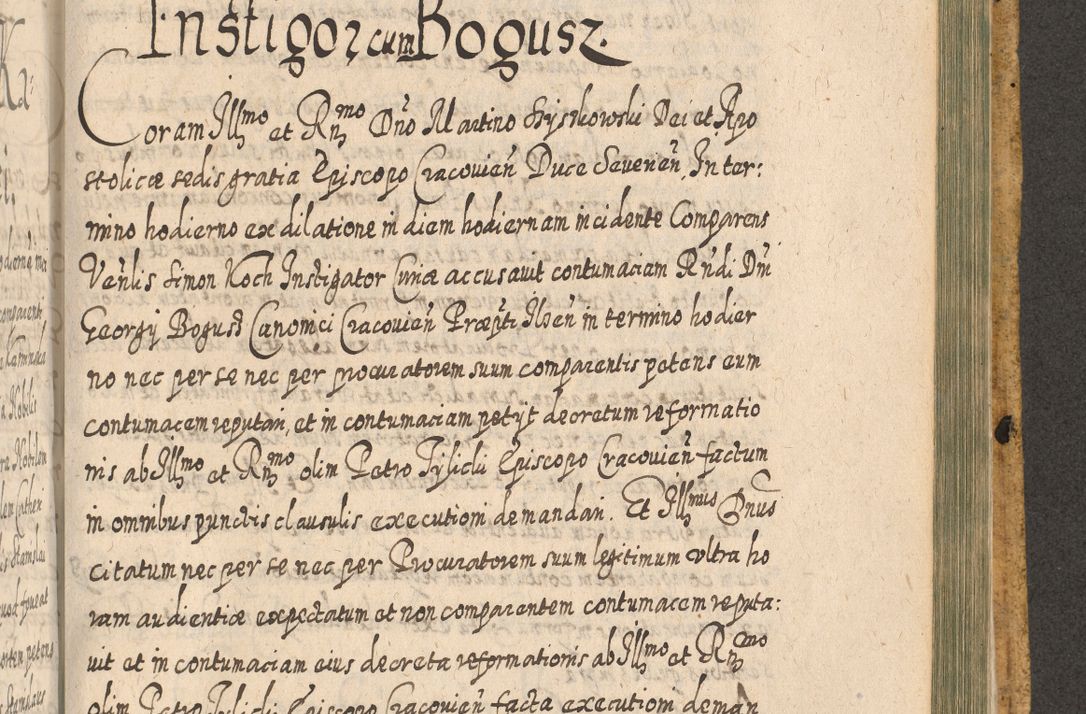 Instigor cum Bogusz.
Coram Illmo et Rndmo Dno Martino Szyskowski Dei et Apo
stolicæ sedis gratia Episcopo Cracovien Duce Severien, In ter:
mino hodierno ex dilatione in diem hodiernam incidente Comparens
Venlis Simon Koch Instigator Curiæ accusavit contumaciam Rndi Dni
Georgij Bogusz Canonici Cracovien Præpti Ilsen in termino hodier
no nec per se nec per procuratorem suum comparentis petens eum
contumacem reputari, et in contumaciam petijt decretum reformatio
nis ab Illmo et Rndmo olim Petro Tylicki Episcopo Cracovien factum
in omnibus punctis clausulis executioni demandari. Et Illmus Dnus
citatum nec per se nec per Procuratorem suum legitimum ultra ho
ram audientiæ expectatum et non comparentem contumacem reputa:
vit et in contumaciam eius decreta reformationis ab Illmo et Rndmo
olim Petro Tylicki Episcopo Cracovien facta executioni deman